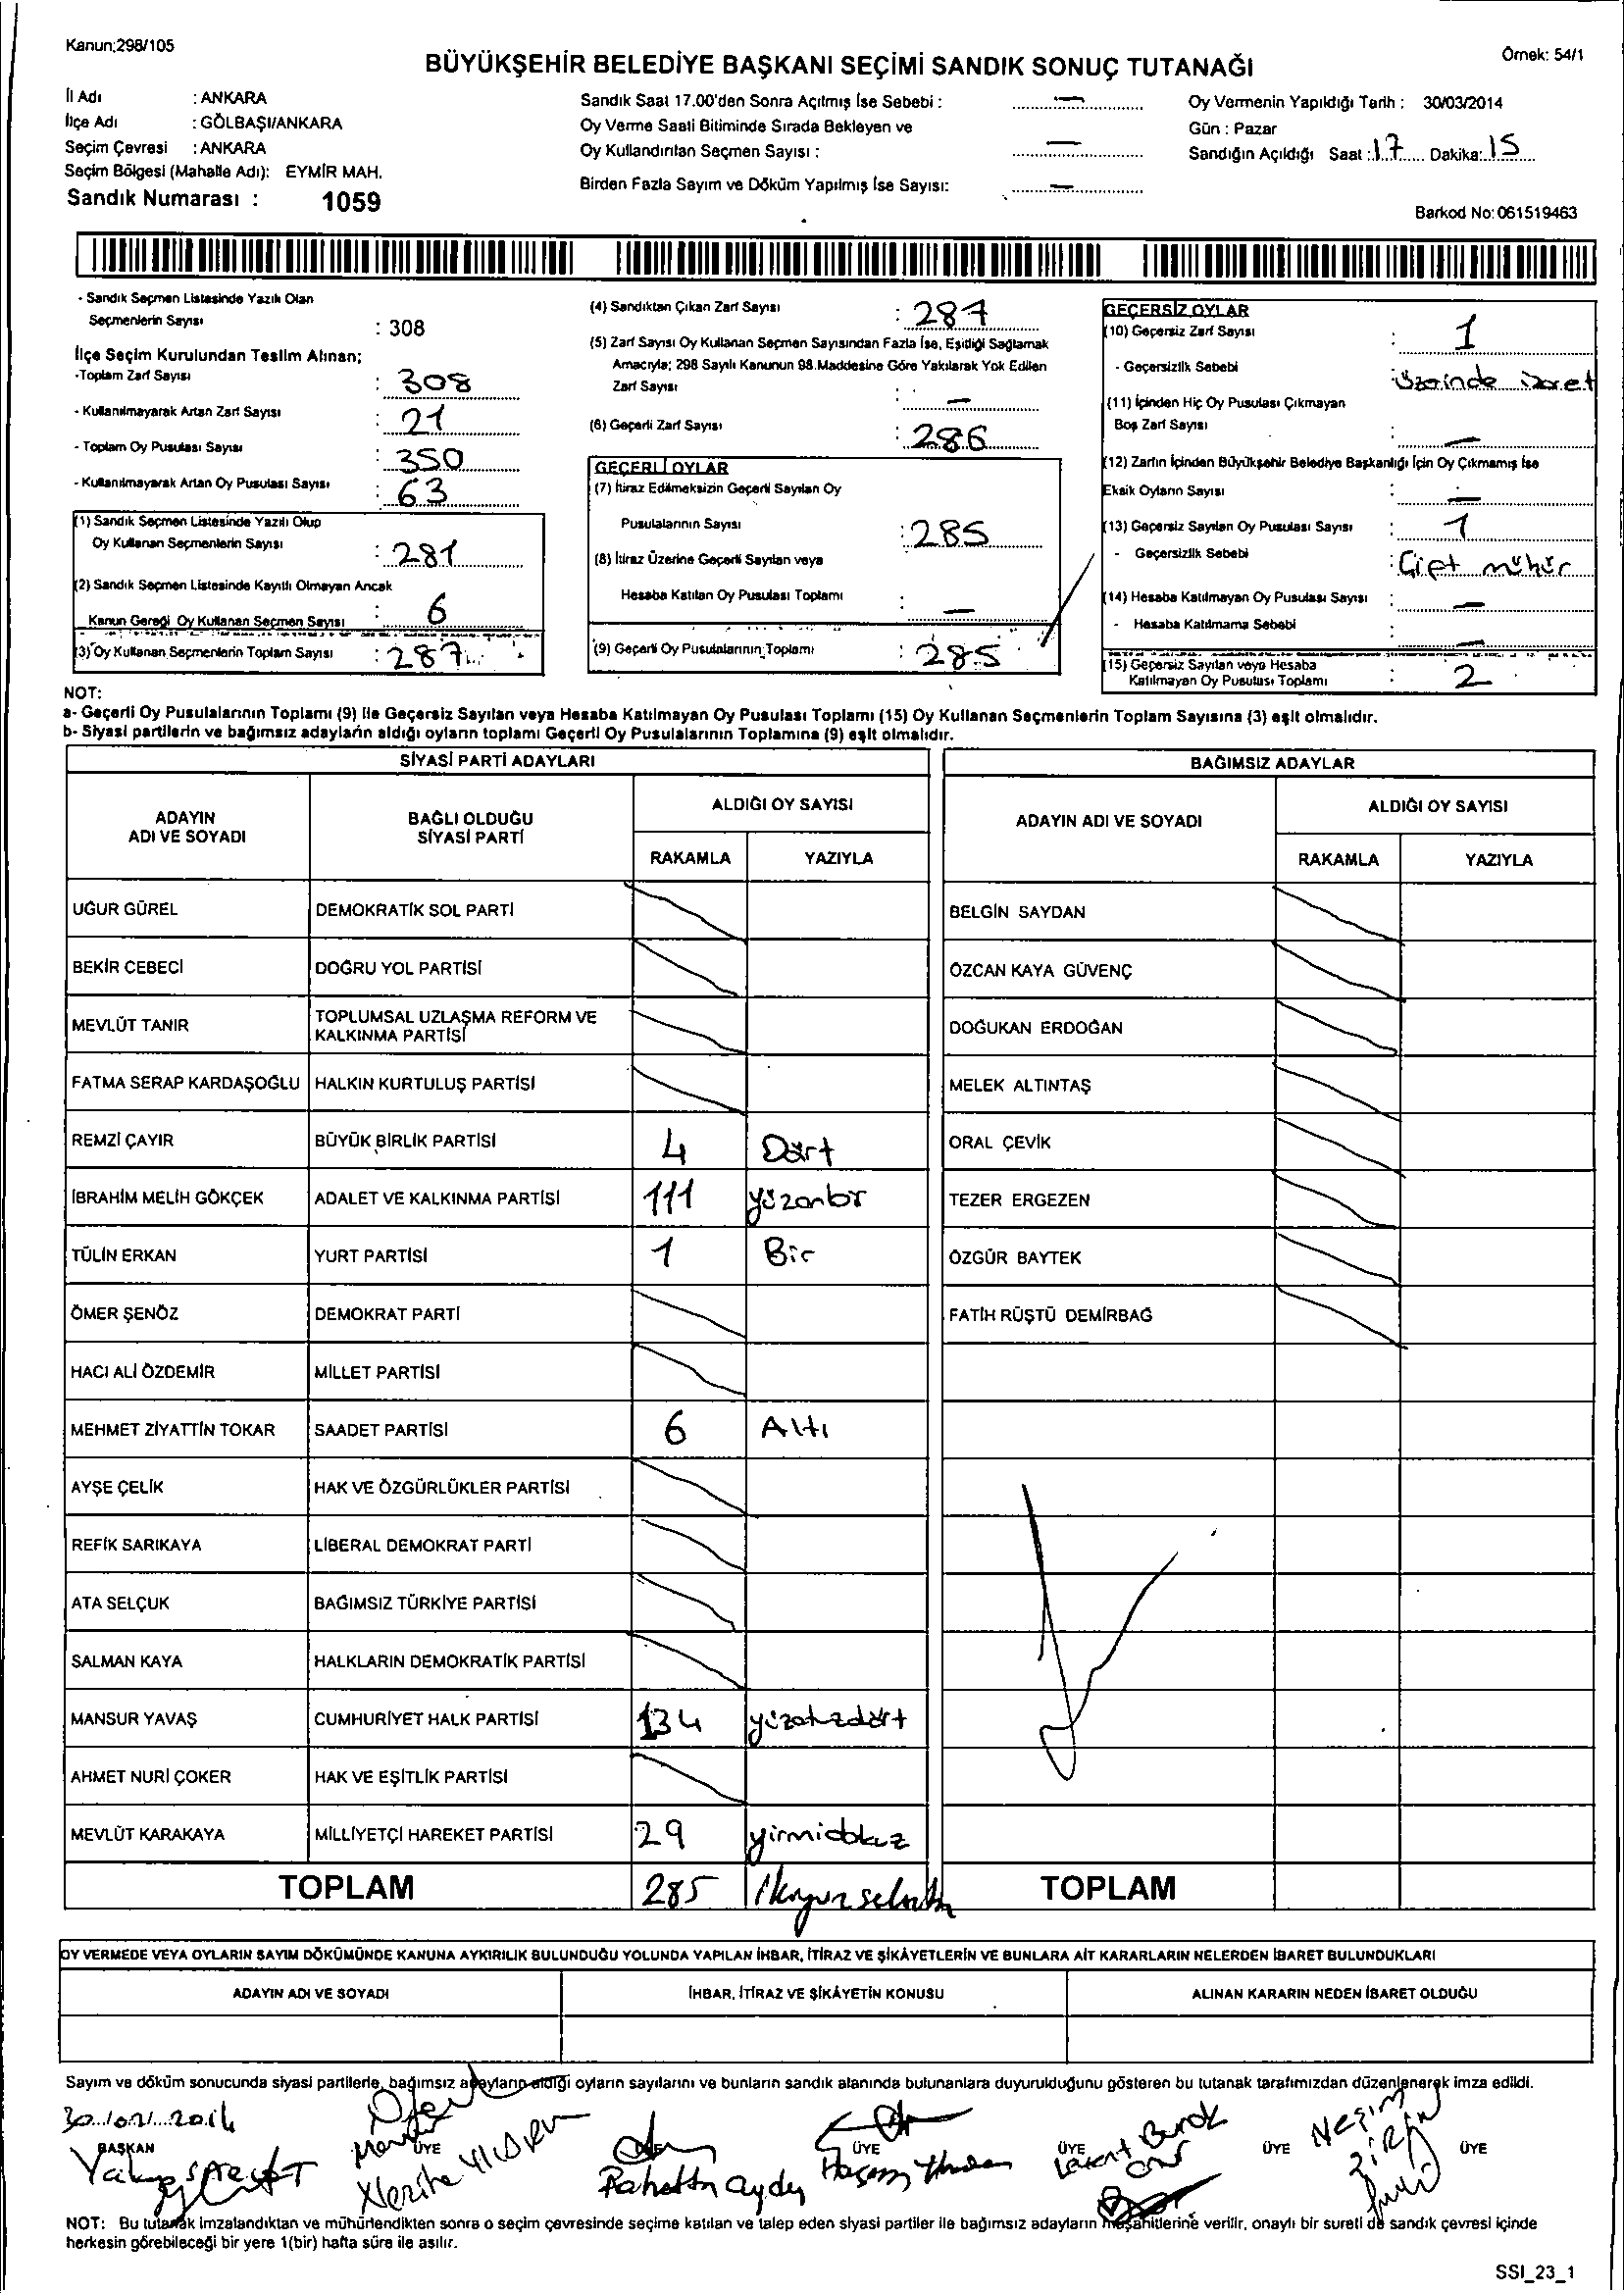 Kanun:298/105
Örnek: 54/1
BÜYÜKŞEHİR BELEDİYE BAŞKANI SEÇİMİ SANDIK SONUÇ TUTANAĞI
İl Adı : ANKARA
İlçe Adı : GÖLBAŞI/ANKARA
Seçim Çevresi : ANKARA
Seçim Bölgesi (Mahalle Adı): EYMİR MAH.
Sandık Numarası : 1059
Sandık Saat 17.00'den Sonra Açılmış İse Sebebi : —
Oy Verme Saati Bitiminde Sırada Bekleyen ve
Oy Kullandırılan Seçmen Sayısı : —
Birden Fazla Sayım ve Döküm Yapılmış İse Sayısı: —
Oy Vermenin Yapıldığı Tarih : 30/03/2014
Gün : Pazar
Sandığın Açıldığı Saat : 17 Dakika: 15
Barkod No: 061519463
- Sandık Seçmen Listesinde Yazılı Olan
Seçmenlerin Sayısı : 308
İlçe Seçim Kurulundan Teslim Alınan;
-Toplam Zarf Sayısı : 308
- Kullanılmayarak Artan Zarf Sayısı : 21
- Toplam Oy Pusulası Sayısı : 350
- Kullanılmayarak Artan Oy Pusulası Sayısı : 63
(1) Sandık Seçmen Listesinde Yazılı Olup
Oy Kullanan Seçmenlerin Sayısı : 281
(2) Sandık Seçmen Listesinde Kayıtlı Olmayan Ancak
Kanun Gereği Oy Kullanan Seçmen Sayısı : 6
(3) Oy Kullanan Seçmenlerin Toplam Sayısı : 287
(4) Sandıktan Çıkan Zarf Sayısı : 287
(5) Zarf Sayısı Oy Kullanan Seçmen Sayısından Fazla İse, Eşitliği Sağlamak
Amacıyla; 298 Sayılı Kanunun 98.Maddesine Göre Yakılarak Yok Edilen
Zarf Sayısı : —
(6) Geçerli Zarf Sayısı : 286
GEÇERLİ OYLAR
(7) İtiraz Edilmeksizin Geçerli Sayılan Oy
Pusulalarının Sayısı : 285
(8) İtiraz Üzerine Geçerli Sayılan veya
Hesaba Katılan Oy Pusulası Toplamı : —
(9) Geçerli Oy Pusulalarının Toplamı : 285
GEÇERSİZ OYLAR
(10) Geçersiz Zarf Sayısı : 1
- Geçersizlik Sebebi : üzerinde işaret
(11) İçinden Hiç Oy Pusulası Çıkmayan
Boş Zarf Sayısı : —
(12) Zarfın İçinden Büyükşehir Belediye Başkanlığı İçin Oy Çıkmamış İse
Eksik Oyların Sayısı : —
(13) Geçersiz Sayılan Oy Pusulası Sayısı : 1
- Geçersizlik Sebebi : Çift mühür
(14) Hesaba Katılmayan Oy Pusulası Sayısı : —
- Hesaba Katılmama Sebebi : —
(15) Geçersiz Sayılan veya Hesaba
Katılmayan Oy Pusulası Toplamı : 2
NOT:
a- Geçerli Oy Pusulalarının Toplamı (9) ile Geçersiz Sayılan veya Hesaba Katılmayan Oy Pusulası Toplamı (15) Oy Kullanan Seçmenlerin Toplam Sayısına (3) eşit olmalıdır.
b- Siyasi partilerin ve bağımsız adayların aldığı oyların toplamı Geçerli Oy Pusulalarının Toplamına (9) eşit olmalıdır.
SİYASİ PARTİ ADAYLARI
ADAYIN ADI VE SOYADI
BAĞLI OLDUĞU SİYASİ PARTİ
ALDIĞI OY SAYISI
RAKAMLA YAZIYLA
UĞUR GÜREL DEMOKRATİK SOL PARTİ
BEKİR CEBECİ DOĞRU YOL PARTİSİ
MEVLÜT TANIR TOPLUMSAL UZLAŞMA REFORM VE KALKINMA PARTİSİ
FATMA SERAP KARDAŞOĞLU HALKIN KURTULUŞ PARTİSİ
REMZİ ÇAYIR BÜYÜK BİRLİK PARTİSİ 4 Dört
İBRAHİM MELİH GÖKÇEK ADALET VE KALKINMA PARTİSİ 111 yüzonbir
TÜLİN ERKAN YURT PARTİSİ 1 Bir
ÖMER ŞENÖZ DEMOKRAT PARTİ
HACI ALİ ÖZDEMİR MİLLET PARTİSİ
MEHMET ZİYATTİN TOKAR SAADET PARTİSİ 6 Altı
AYŞE ÇELİK HAK VE ÖZGÜRLÜKLER PARTİSİ
REFİK SARIKAYA LİBERAL DEMOKRAT PARTİ
ATA SELÇUK BAĞIMSIZ TÜRKİYE PARTİSİ
SALMAN KAYA HALKLARIN DEMOKRATİK PARTİSİ
MANSUR YAVAŞ CUMHURİYET HALK PARTİSİ 134 yüzotuzdört
AHMET NURİ ÇOKER HAK VE EŞİTLİK PARTİSİ
MEVLÜT KARAKAYA MİLLİYETÇİ HAREKET PARTİSİ 29 yirmidokuz
TOPLAM 285
BAĞIMSIZ ADAYLAR
ADAYIN ADI VE SOYADI
ALDIĞI OY SAYISI
RAKAMLA YAZIYLA
BELGİN SAYDAN
ÖZCAN KAYA GÜVENÇ
DOĞUKAN ERDOĞAN
MELEK ALTINTAŞ
ORAL ÇEVİK
TEZER ERGEZEN
ÖZGÜR BAYTEK
FATİH RÜŞTÜ DEMİRBAĞ
TOPLAM
OY VERMEDE VEYA OYLARIN SAYIM DÖKÜMÜNDE KANUNA AYKIRILIK BULUNDUĞU YOLUNDA YAPILAN İHBAR, İTİRAZ VE ŞİKÂYETLERİN VE BUNLARA AİT KARARLARIN NELERDEN İBARET BULUNDUKLARI
ADAYIN ADI VE SOYADI
İHBAR, İTİRAZ VE ŞİKÂYETİN KONUSU
ALINAN KARARIN NEDEN İBARET OLDUĞU
Sayım ve döküm sonucunda siyasi partilerle, bağımsız adayların aldığı oyların sayılarını ve bunların sandık alanında bulunanlara duyurulduğunu gösteren bu tutanak tarafımızdan düzenlenerek imza edildi.
BAŞKAN ÜYE ÜYE ÜYE ÜYE ÜYE
NOT: Bu tutanak imzalandıktan ve mühürlendikten sonra o seçim çevresinde seçime katılan ve talep eden siyasi partiler ile bağımsız adayların müşahitlerine verilir, onaylı bir sureti de sandık çevresi içinde
herkesin görebileceği bir yere 1(bir) hafta süre ile asılır.
SSI_23_1